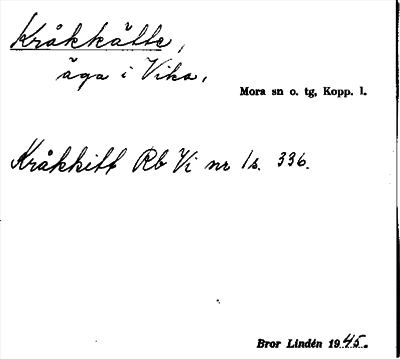 Kråkkätte,
äga i Vika,
Mora sn o. tg, Kopp. l.
Kråkkitt Rb Vi nr 1 s. 336.
Bror Lindén 1945.